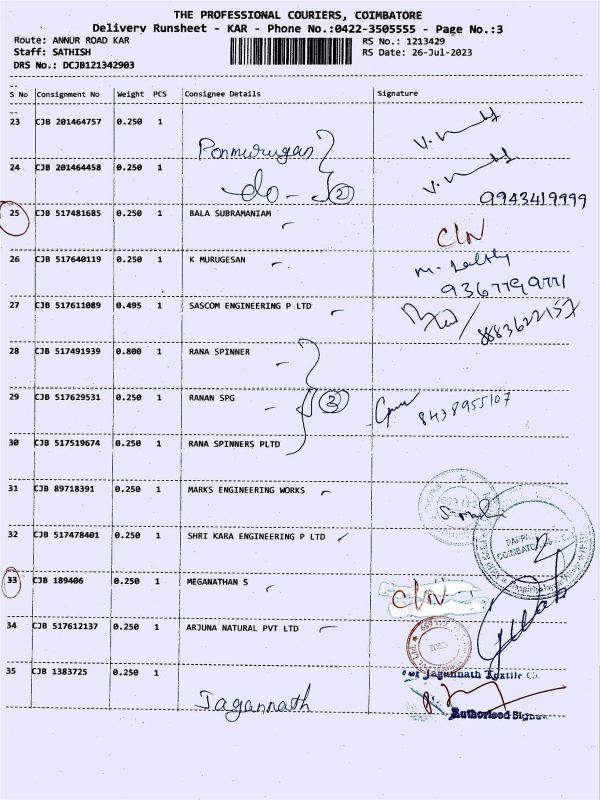 THE PROFESSIONAL COURIERS, COIMBATORE
Delivery Runsheet - KAR - Phone No.:0422-3505555 - Page No.:3
Route: ANNUR ROAD KAR RS No.: 1213429
Staff: SATHISH RS Date: 26-Jul-2023
DRS No.: DCJB121342903
S No Consignment No Weight PCS Consignee Details Signature
23 CJB 201464757 0.250 1 Ponmurugan
24 CJB 201464458 0.250 1 do - 2 9943419999
25 CJB 517481685 0.250 1 BALA SUBRAMANIAM C/N
26 CJB 517640119 0.250 1 K MURUGESAN
27 CJB 517611089 0.495 1 SASCOM ENGINEERING P LTD 8883622157
28 CJB 517491939 0.800 1 RANA SPINNER
29 CJB 517629531 0.250 1 RANAN SPG 3 8438955107
30 CJB 517519674 0.250 1 RANA SPINNERS PLTD
31 CJB 89718391 0.250 1 MARKS ENGINEERING WORKS
32 CJB 517478401 0.250 1 SHRI KARA ENGINEERING P LTD
33 CJB 189406 0.250 1 MEGANATHAN S C/N
34 CJB 517612137 0.250 1 ARJUNA NATURAL PVT LTD
35 CJB 1383725 0.250 1 Jagannath
Jagannath Textile Co.
Authorised